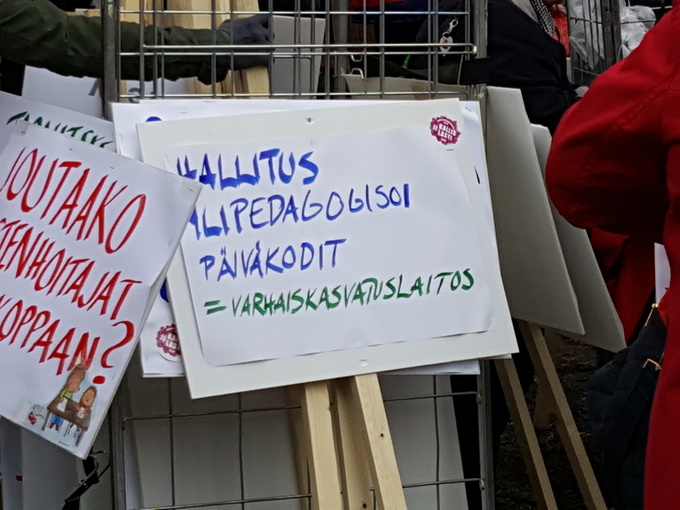 JOUTAAKO
STENHOITAJAT
KOPPAAN?
HALLITUS
ALIPEDAGOGISOI
PÄIVÄKODIT
= VARHAISKASVATUSLAITOS
#KALLIS
LASTI